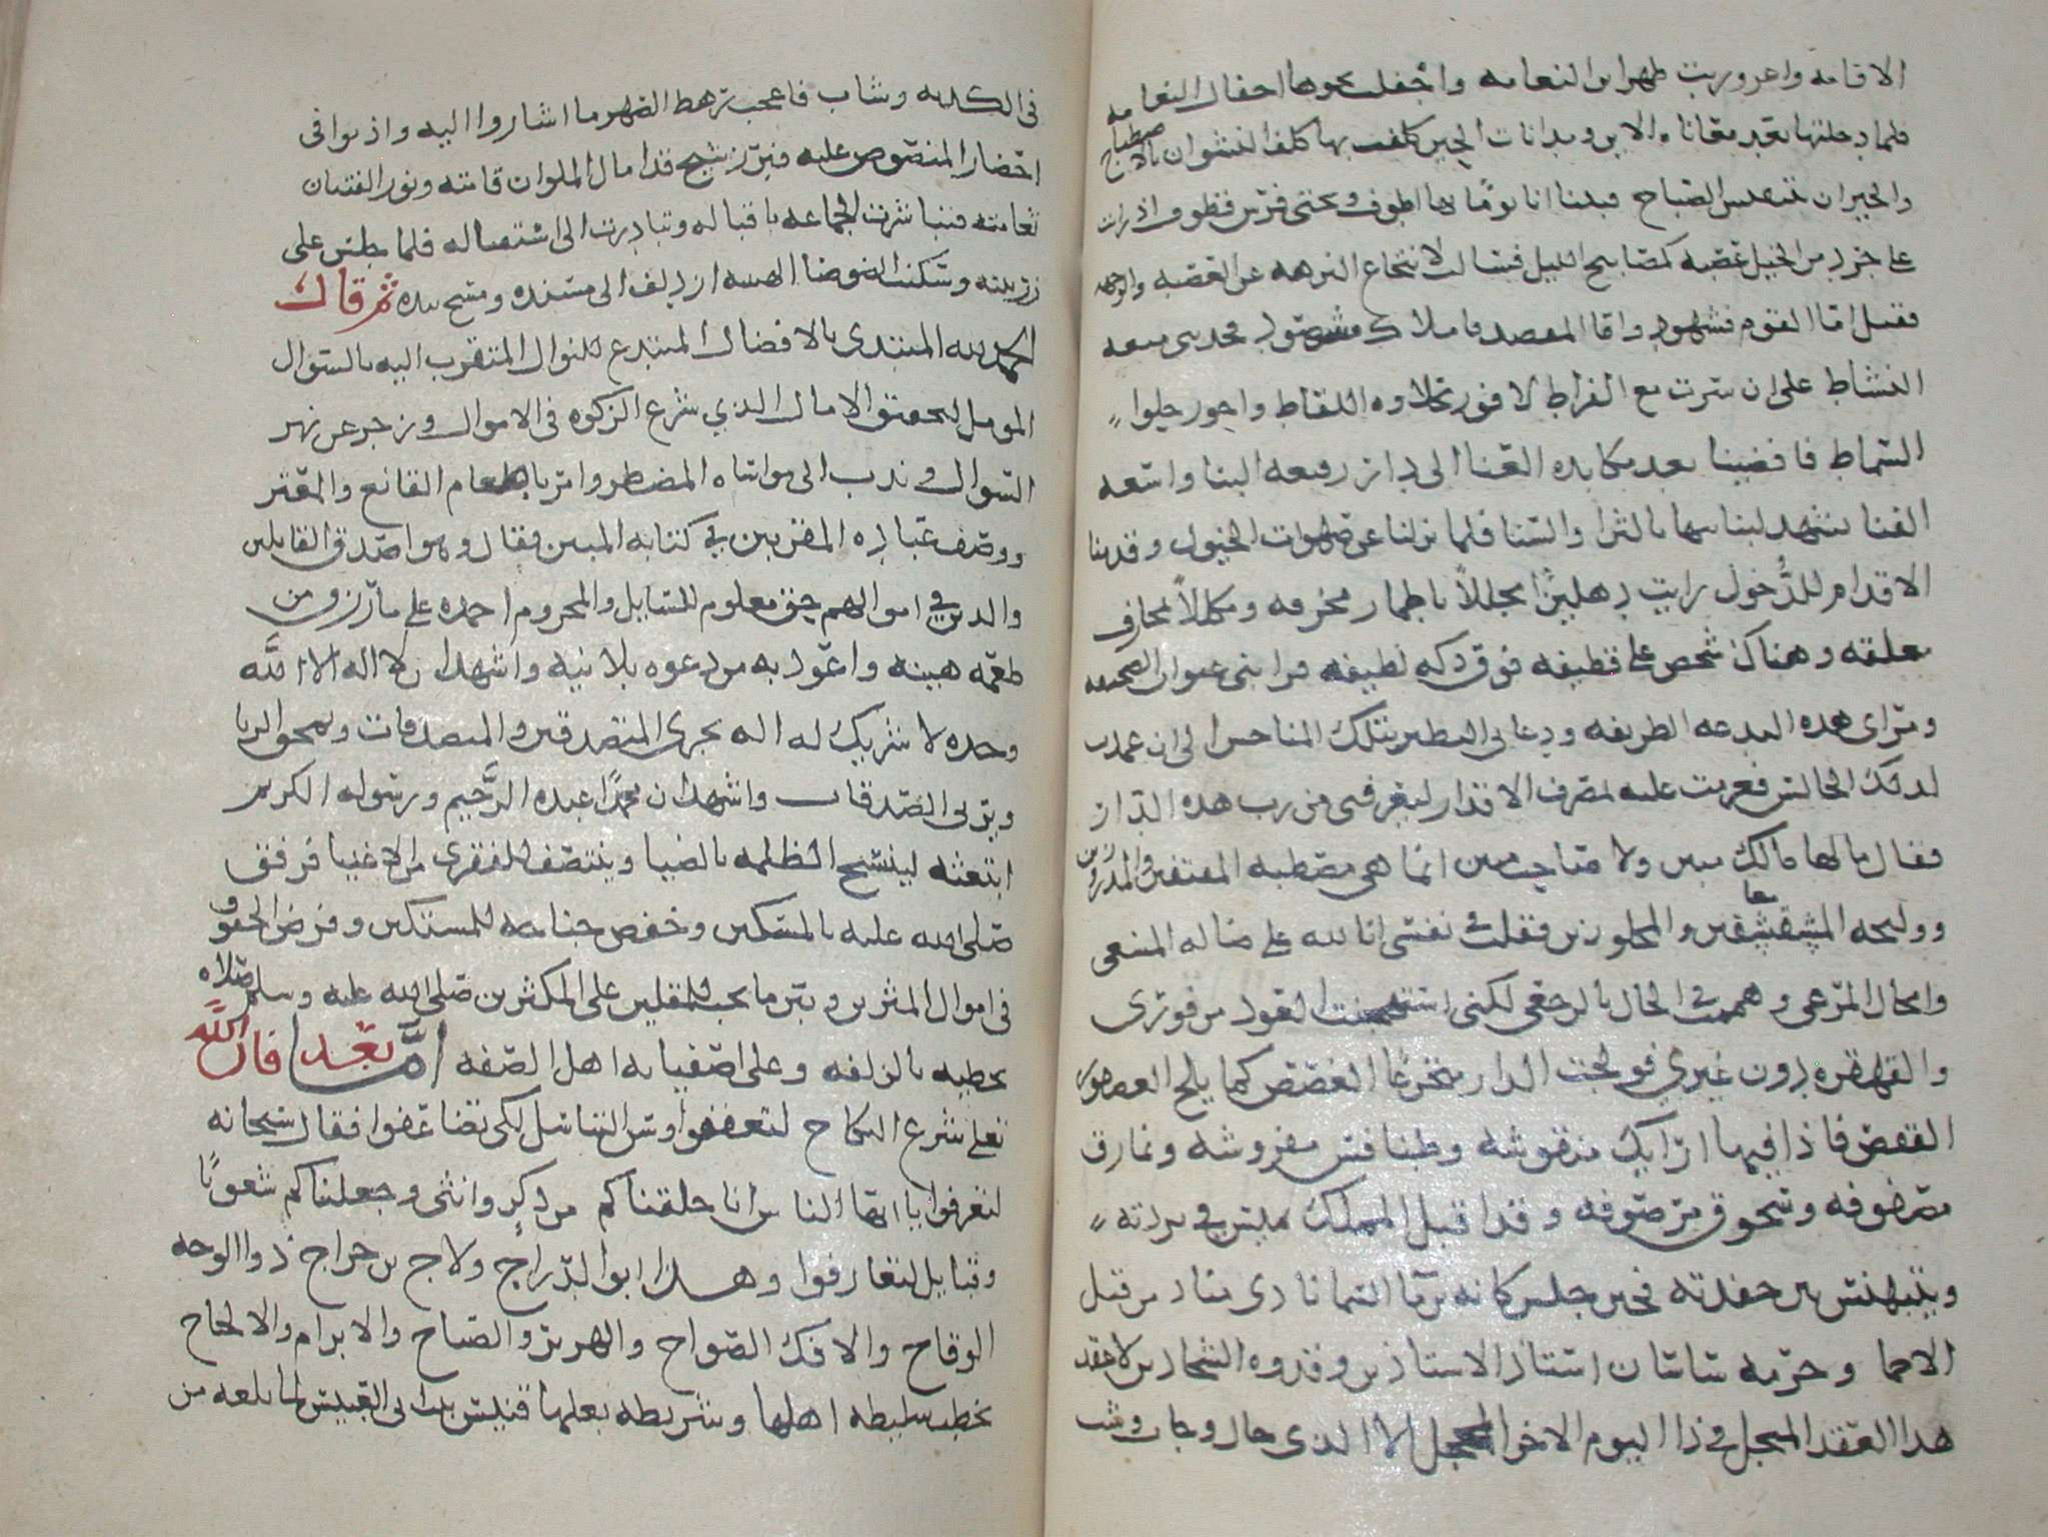 الاقامه واعروريت ظهر ابن النعامه واجفلت نحوها اجفال النعامه
فلما دخلتها بعد معاناه الاين ومداناة الحين كلفت بها كلف النشوان بالاصطباح
والحيران بتنفس الصباح فبينا انا يومًا بها اطوف وتحتي فرس قطوف اذ رايت
على جرد من الخيل عصبه كمصابيح الليل فسالت لانتجاع النزهه عن العصبه والوجهه
فقيل اما القوم فشهود واما المقصد فاملاك مشهود فحدتنى ميعه
النشاط على ان سرت مع الفراط لافوز بحلاوه اللقاط واحوز حلوا
السماط فافضينا بعد مكابده العنا الى دار رفيعه البنا واسعه
الفنا تشهد لبانيها بالثرا والسنا فلما نزلنا عن صهوات الخيول وقدمنا
الاقدام للدُّخول رايت دهليزًا مجللاً باطمار مخرقه ومكللاً بمخارف
معلقه وهناك شخص على قطيفه فوق دكه لطيفه فرابنى عنوان الصحيفه
ومراى هذه البدعه الطريفه ودعانى التطير بتلك المناحس الى ان عمدت
لذلك الجالس فعزمت عليه بمصرف الاقدار ليعرفنى من رب هذه الدار
فقال مالها مالك معين ولا صاحب مبين انما هي مصطبه المقيفين والمدروزين
ووليجه المشقشقين والمجلوزين فقلت في نفسى انا لله على ضله المسعى
وامحال المرعى وهممت في الحال بالرجعى لكنى استهجنت العود من فورى
والقهقره دون غيري فولجت الدار متجرعًا الغصص كما يلج العصفور
القفص فاذا فيها ارايك منقوشه وطنافس مفروشه ونمارق
مصفوفه وسجوف مرصوفه وقد اقبل المملك يميس في بردته
ويتبهنس بين حفدته فحين جلس كانه ابن ما السما نادى مناد من قبل
الاحما وحرمه ساسان استاذ الاستاذين وقدوه الشحاذين لا عقد
هذا العقد المبجل في ذا اليوم الاغر المحجل الا الذى جال وجاب وشب
فى الكديه وشاب فاعجب رهط الصهر ما اشاروا اليه واذنوا فى
احضار المنصوص عليه فبرز شيخ قد امال الملوان قامته ونور الفتيان
ثغامته فتباشرت الجماعه باقباله وتبادرت الى استقباله فلما جلس على
زربيته وسكنت الضوضا لهيبته ازدلف الى مسنده ومسح سبلته بيده ثم قال
الحمد لله المبتدى بالافضال المبتدع للنوال المتقرب اليه بالسوال
المومل لتحقيق الامال الذي شرع الزكوه فى الاموال وزجر عن نهر
السوال وندب الى مواساه المضطر وامر باطعام القانع والمعتر
ووصف عباده المقربين في كتابه المبين فقال وهو اصدق القايلين
والذين في اموالهم حق معلوم للسايل والمحروم احمده على ما رزق من
طعمه هنيه واعوذ به من دعوه بلا نيه واشهد ان لا اله الا الله
وحده لا شريك له اله يجزى المتصدقين والمتصدقات ويمحق الربا
ويربى الصدقات واشهد ان محمدًا عبده الرَّحيم ورسوله الكريم
ابتعثه لينسخ الظلمه بالضيا وينتصف للفقرى من الاغنيا فرفق
صلى الله عليه بالمسكين وخفض جناحه للمستكين وفرض الحقوق
فى اموال المثرين وبين ما يجب للمقلين على المكثرين صلى الله عليه وسلم صلاه
تحظيه بالزلفه وعلى اصفيايه اهل الصفه امَّا بعد فان الله
تعلى شرع النكاح لتتعففوا وسن التناسل لكي تضاعفوا فقال سبحانه
لتعرفوا يا ايها الناس انا خلقناكم من ذكرٍ وانثى وجعلناكم شعوبًا
وقبايل لتعارفوا وهذا ابو الدراج ولاج بن خراج ذو الوجه
الوقاح والافك الصراح والهرير والصياح والابرام والالحاح
يخطب سليطه اهلها وشريطه بعلها قنبس بنت ابى العنبس لما بلغه من